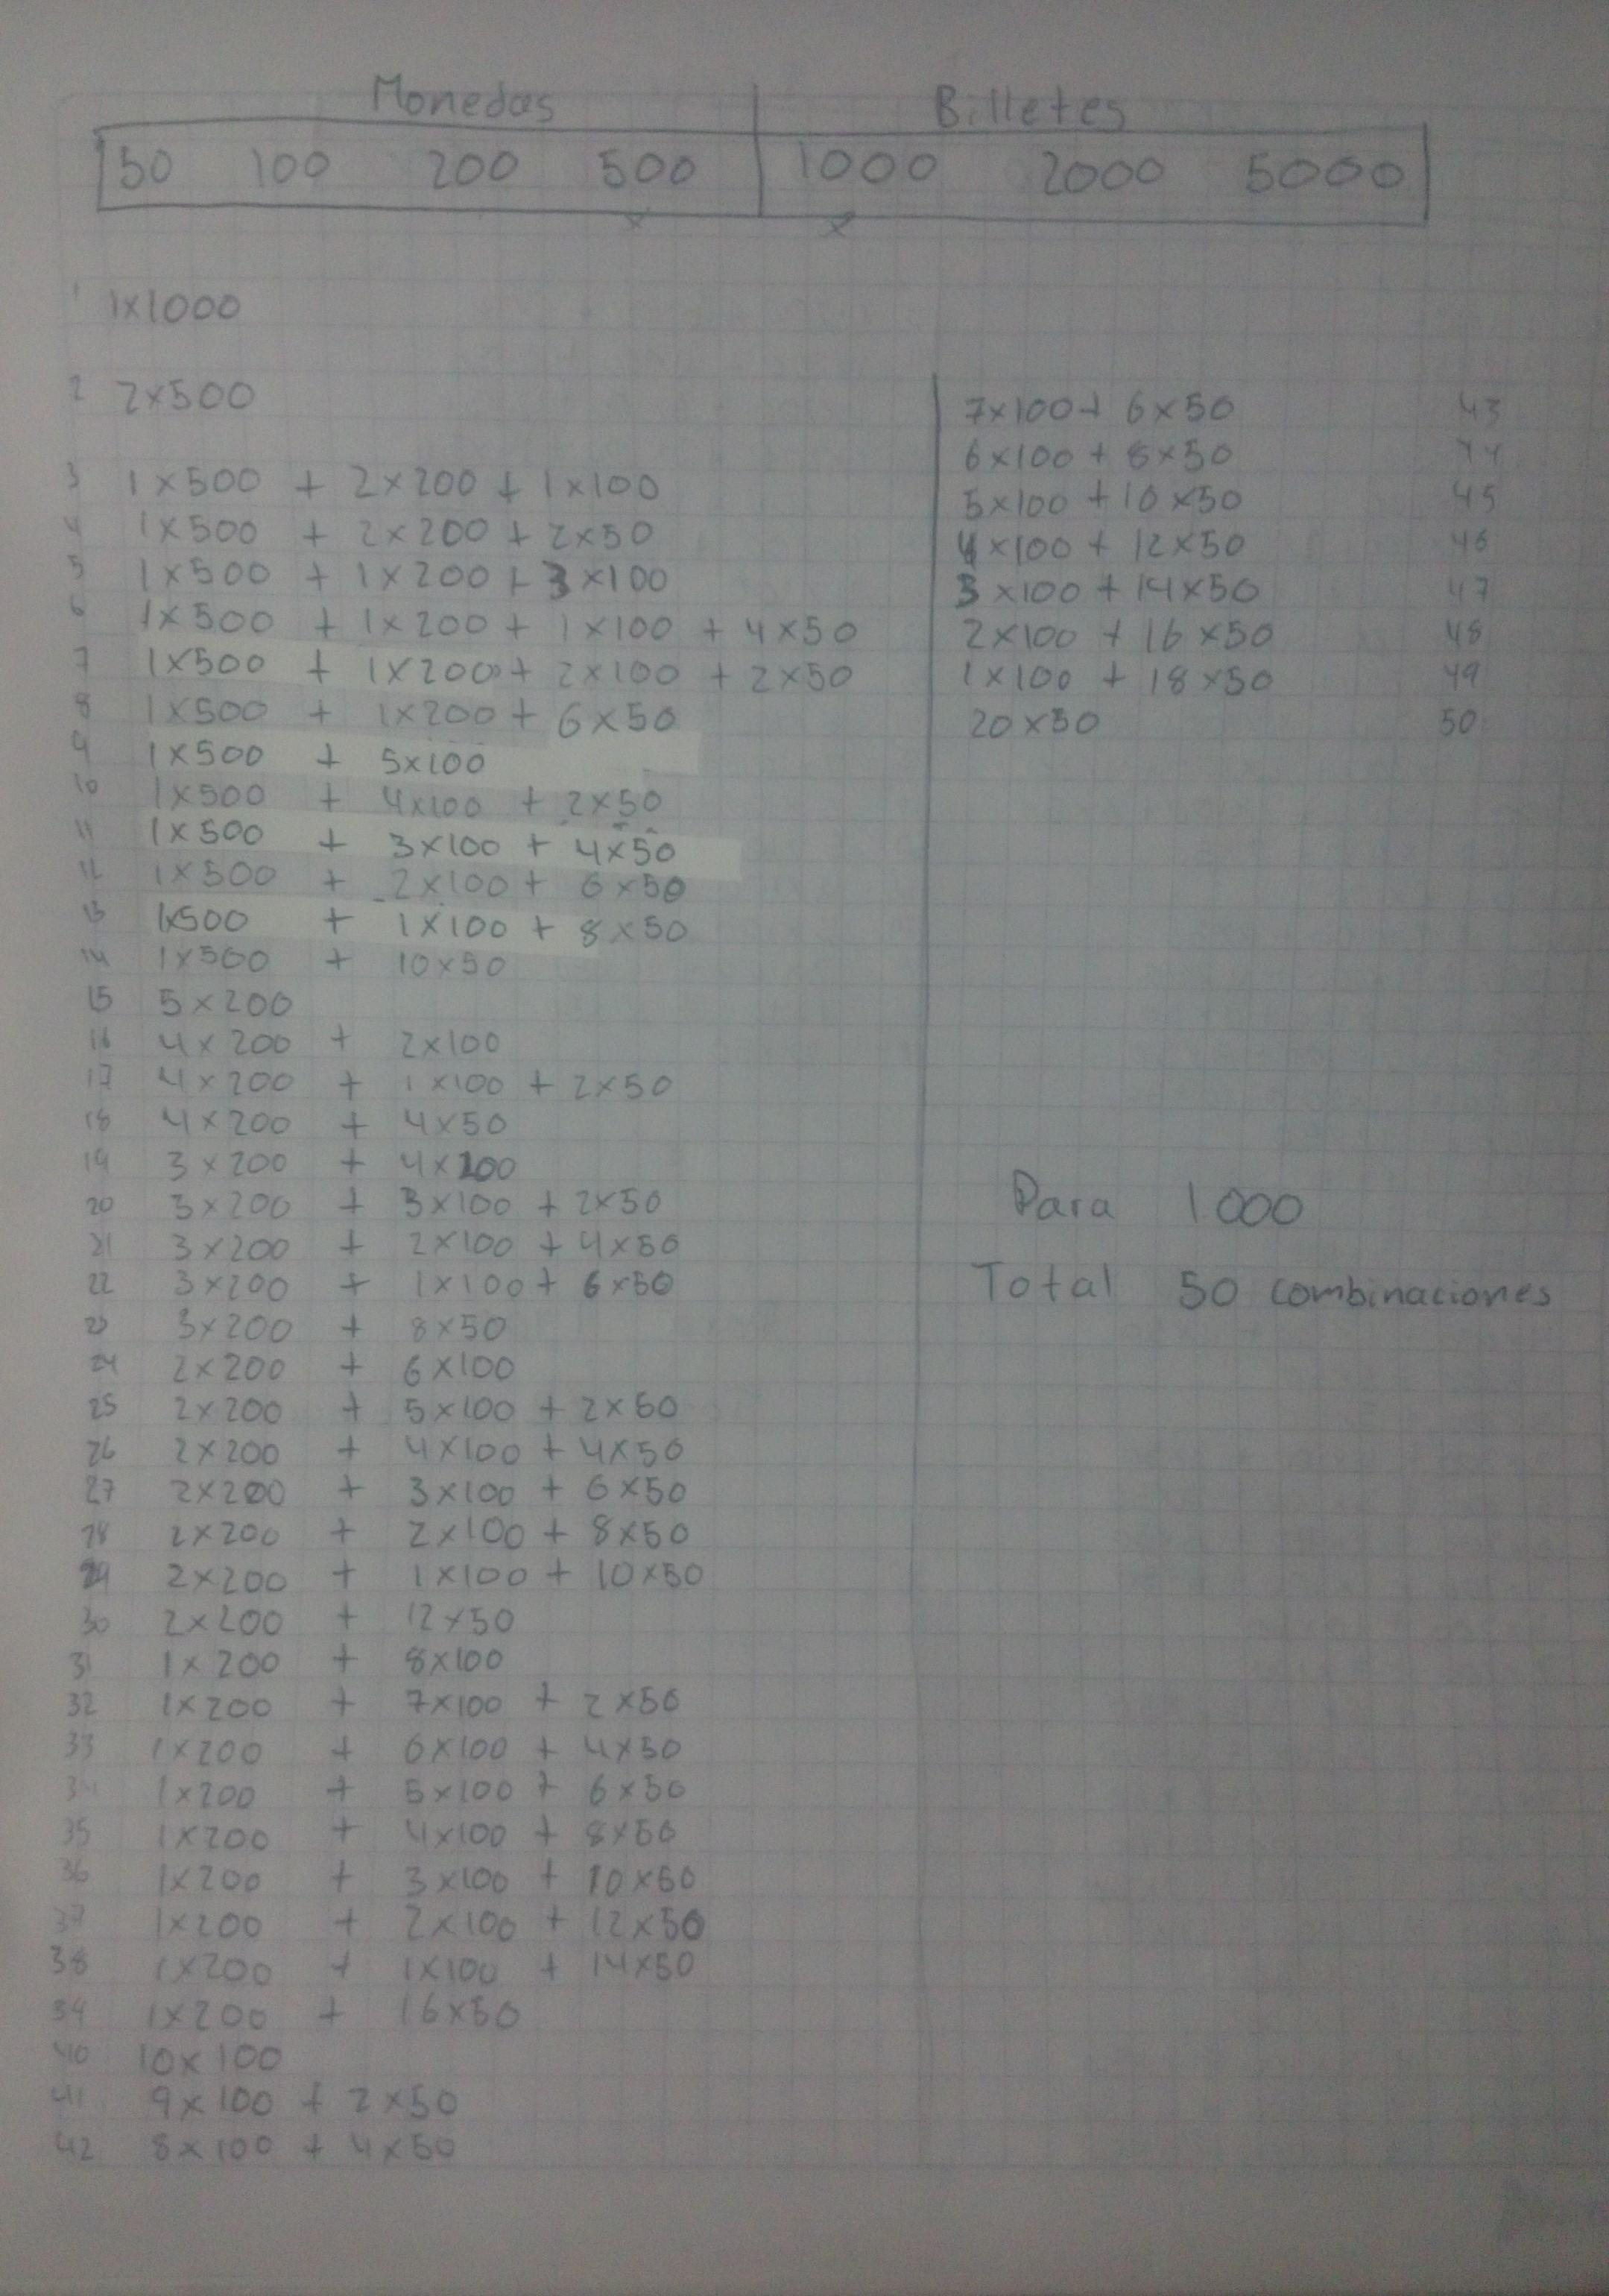 Monedas Billetes
50 100 200 500 1000 2000 5000
x x
1 1x1000
2 2x500
3 1x500 + 2x200 + 1x100
4 1x500 + 2x200 + 2x50
5 1x500 + 1x200 + 3x100
6 1x500 + 1x200 + 1x100 + 4x50
7 1x500 + 1x200 + 2x100 + 2x50
8 1x500 + 1x200 + 6x50
9 1x500 + 5x100
10 1x500 + 4x100 + 2x50
11 1x500 + 3x100 + 4x50
12 1x500 + 2x100 + 6x50
13 1x500 + 1x100 + 8x50
14 1x500 + 10x50
15 5x200
16 4x200 + 2x100
17 4x200 + 1x100 + 2x50
18 4x200 + 4x50
19 3x200 + 4x100
20 3x200 + 3x100 + 2x50
21 3x200 + 2x100 + 4x50
22 3x200 + 1x100 + 6x50
23 3x200 + 8x50
24 2x200 + 6x100
25 2x200 + 5x100 + 2x50
26 2x200 + 4x100 + 4x50
27 2x200 + 3x100 + 6x50
28 2x200 + 2x100 + 8x50
29 2x200 + 1x100 + 10x50
30 2x200 + 12x50
31 1x200 + 8x100
32 1x200 + 7x100 + 2x50
33 1x200 + 6x100 + 4x50
34 1x200 + 5x100 + 6x50
35 1x200 + 4x100 + 8x50
36 1x200 + 3x100 + 10x50
37 1x200 + 2x100 + 12x50
38 1x200 + 1x100 + 14x50
39 1x200 + 16x50
40 10x100
41 9x100 + 2x50
42 8x100 + 4x50
7x100 + 6x50 43
6x100 + 8x50 44
5x100 + 10x50 45
4x100 + 12x50 46
3x100 + 14x50 47
2x100 + 16x50 48
1x100 + 18x50 49
20x50 50
Para 1000
Total 50 combinaciones